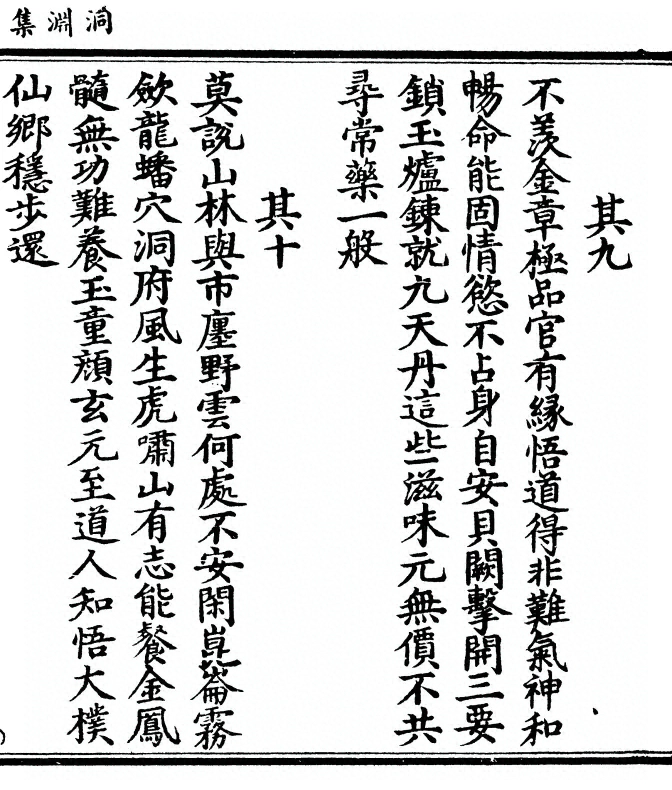 洞淵集
其九
不羨金章極品官有緣悟道得非難氣神和
暢命能固情慾不占身自安貝闕擊開三要
鎖玉爐鍊就九天丹這些滋味元無價不共
尋常藥一般
其十
莫說山林與市廛野雲何處不安閑崑崙霧
斂龍蟠穴洞府風生虎嘯山有志能餐金鳳
髓無功難養玉童顏玄元至道人知悟大樸
仙鄉穩步還